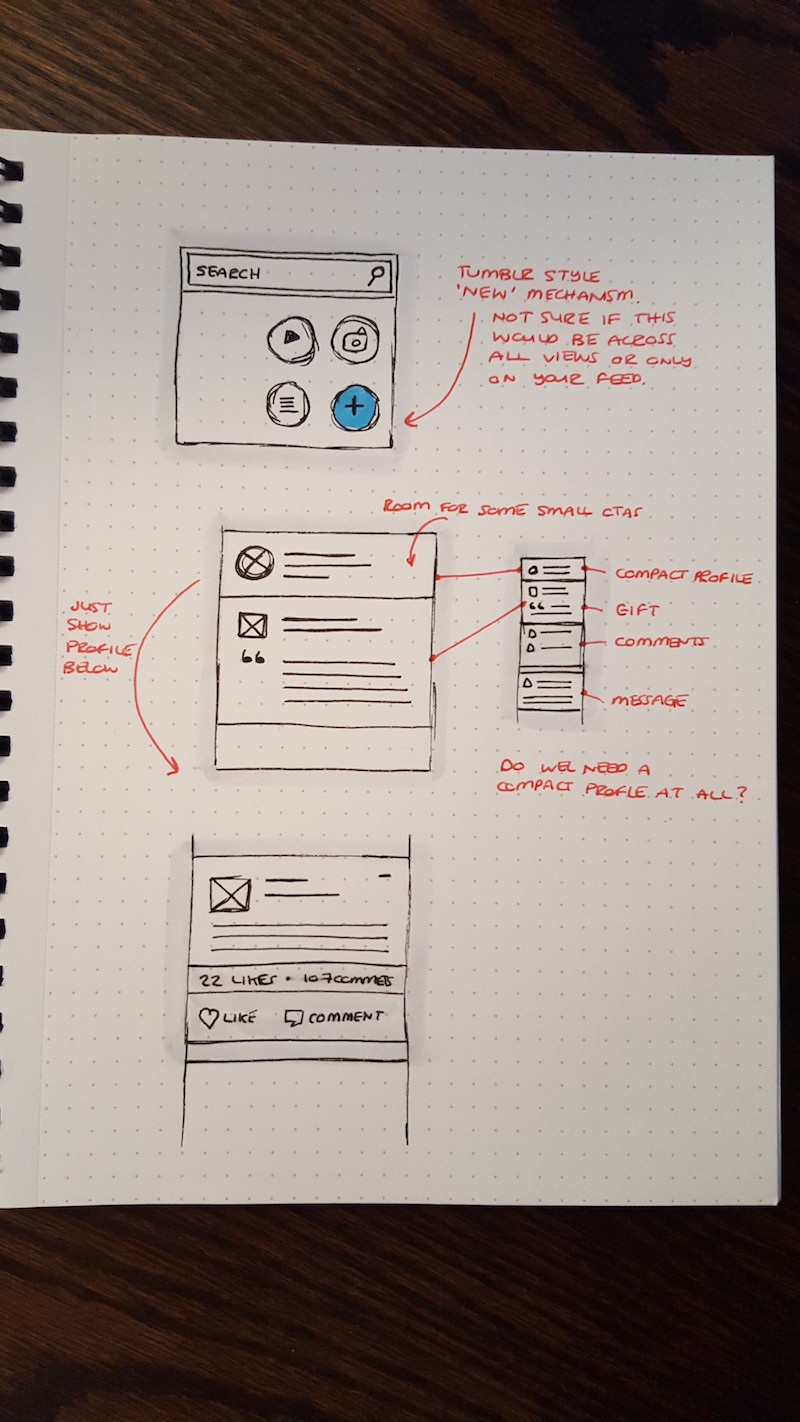 SEARCH
TUMBLR STYLE
'NEW' MECHANISM.
NOT SURE IF THIS
WOULD BE ACROSS
ALL VIEWS OR ONLY
ON YOUR FEED.
ROOM FOR SOME SMALL CTAS
JUST
SHOW
PROFILE
BELOW
COMPACT PROFILE
GIFT
COMMENTS
MESSAGE
DO WEL NEED A
COMPACT PROFLE AT ALL?
22 LIKES • 107 COMMETS
LIKE COMMENT